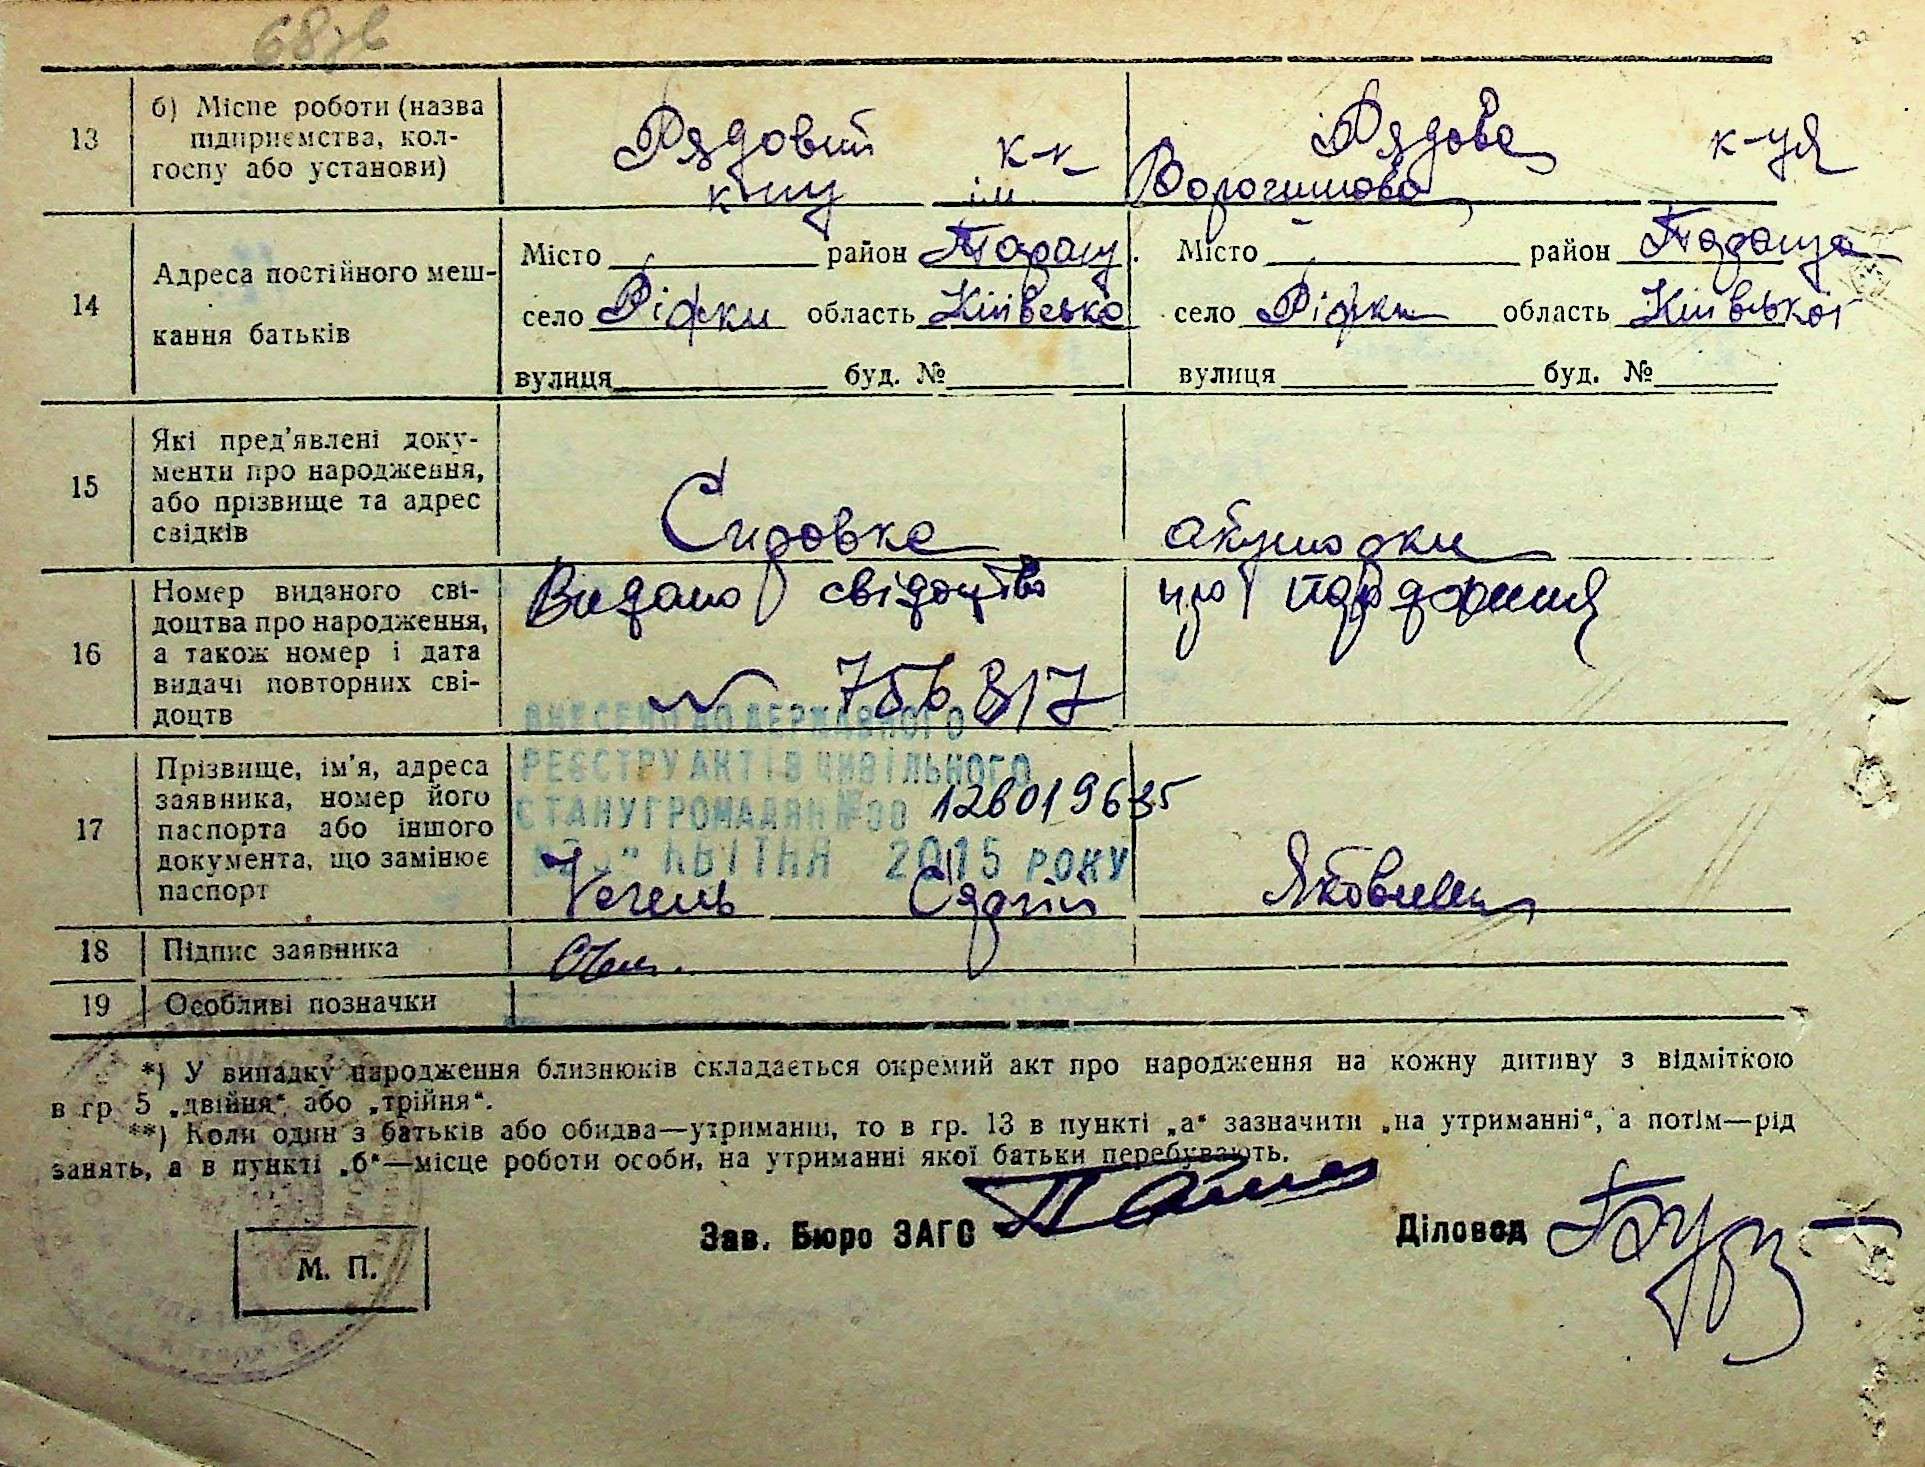 68зв
13
б) Місце роботи (назва
підприємства, кол-
госпу або установи)
Рядовий к-к
Рядова к-ця
к-пу ім. Ворошилова
14
Адреса постійного меш-
кання батьків
Місто район Таращ.
село Ріжки область Київсько
вулиця буд. №
Місто район Тараща
село Ріжки область Київської
вулиця буд. №
15
Які пред'явлені доку-
менти про народження,
або прізвище та адрес
свідків
Справка акушорки
16
Номер виданого сві-
доцтва про народження,
а також номер і дата
видачі повторних сві-
доцтв
Видано свідоцтво про народження
№ 756817
ВНЕСЕНО ДО ДЕРЖАВНОГО
РЕЄСТРУ АКТІВ ЦИВІЛЬНОГО
СТАНУ ГРОМАДЯН № 00 126019635
КВІТНЯ 2015 РОКУ
17
Прізвище, ім'я, адреса
заявника, номер його
паспорта або іншого
документа, що замінює
паспорт
Сергій Яковлевич
18
Підпис заявника
19
Особливі позначки
*) У випадку народження близнюків складається окремий акт про народження на кожну дитину з відміткою
в гр 5 „двійня“ або „трійня“.
**) Коли один з батьків або обидва—утриманці, то в гр. 13 в пункті „а“ зазначити „на утриманні“, а потім—рід
занять, а в пункті „б“—місце роботи особи, на утриманні якої батьки перебувають.
Зав. Бюро ЗАГС
Діловод
М. П.